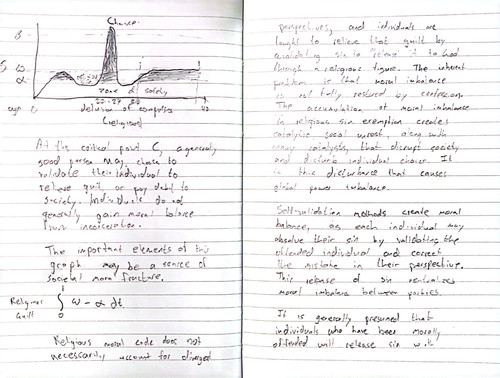 Chance
B
ω
α
zone of safety
age 0
delusion of composure
(religious)
At the critical point C, a generally
good person may chose to
validate the individual to
relieve guilt or pay debt to
society. Individuals do not
generally gain moral balance
from incarceration.
The important elements of this
graph may be a source of
societal moral fracture.
Religious
Guilt
∫ ω - α dt
0
Religious moral code does not
necessarily account for diverged
perspectives, and individuals are
taught to relieve that guilt by
sin to "release" it to God
through a religious figure. The inherent
problem is that moral imbalance
is not fully restored by confession.
The accumulation of moral imbalance
in religious sin exemption creates
catalytic social unrest, along with
many catalysts, that disrupt society
and disturb individual choice. It
is this disturbance that causes
global power imbalance.
Self-validation methods create moral
balance, as each individual may
absolve their sin by validating the
offended individual and correct
the mistake in their perspective.
This release of sin neutralizes
moral imbalance between parties.
It is generally presumed that
individuals who have been morally
offended will release sin with